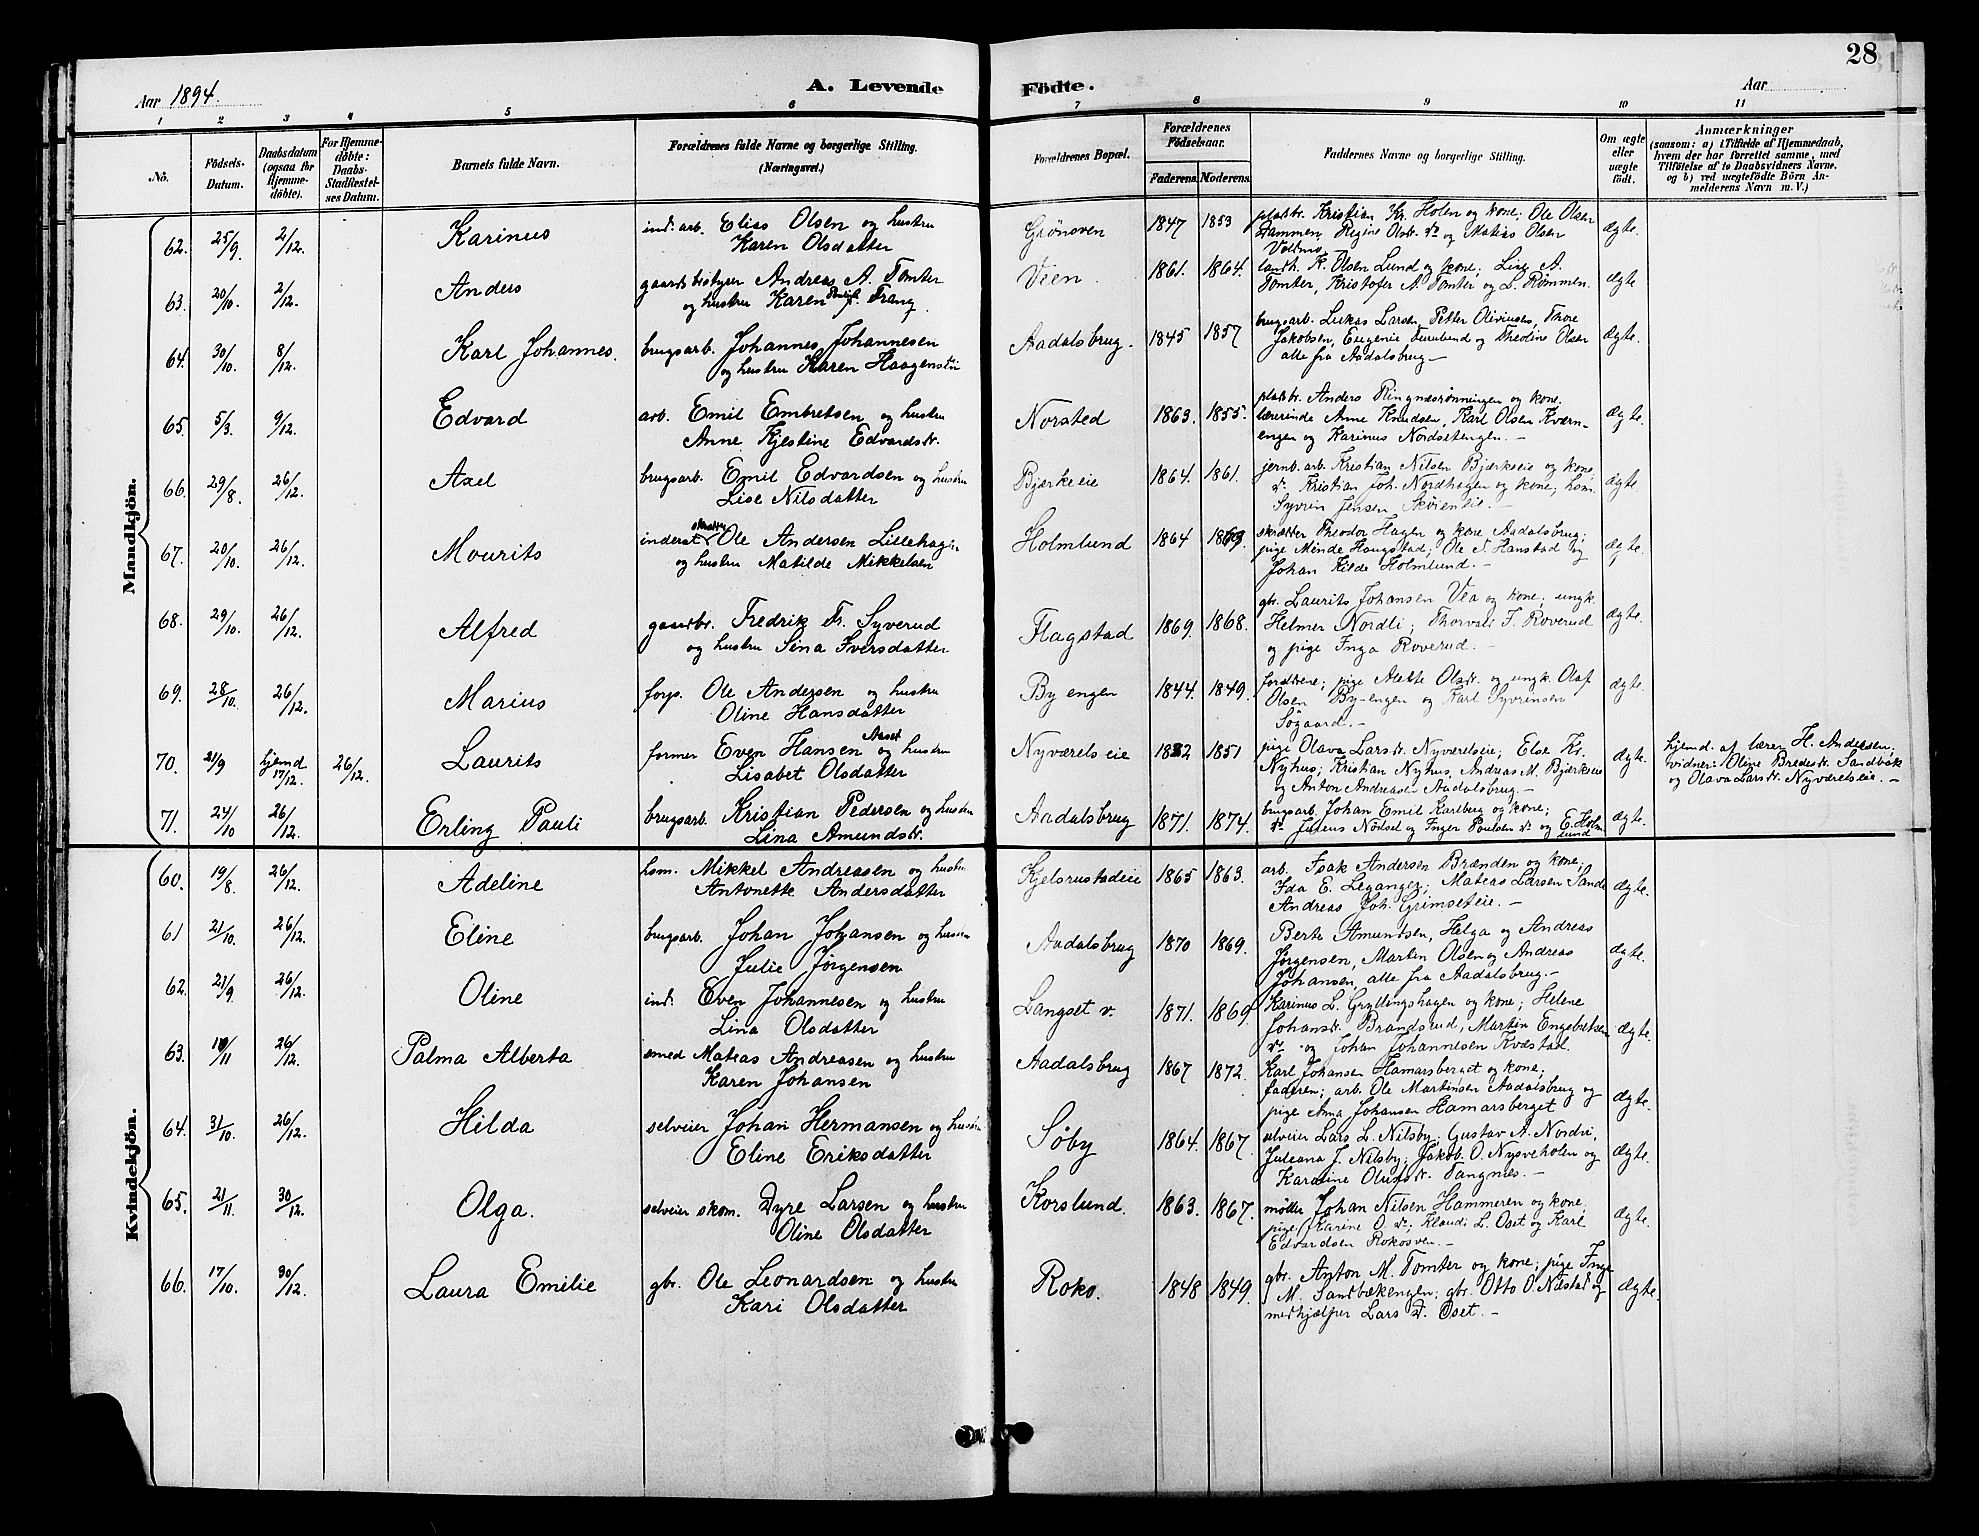 28
Aar 1894.
A. Levende Födte.
Aar
1 2 3 4 5 6 7 8 9 10 11
No.
Födsels-Datum.
Daabsdatum (ogsaa for Hjemmedöbte).
For Hjemmedöbte: Daabs-Stadfæstelses Datum.
Barnets fulde Navn.
Forældrenes fulde Navne og borgerlige Stilling. (Næringsvei.)
Forældrenes Bopæl.
Forældrenes Födselsaar.
Faderens. Moderens.
Faddernes Navne og borgerlige Stilling.
Om ægte eller uægte födt.
Anmærkninger
(saasom: a) i Tilfælde af Hjemmedaab, hvem der har forrettet samme, med Tilföielse af to Daabsvidners Navne. og b) ved uægtefödte Börn Anmelderens Navn m. V.)
Mandkjön.
62. 25/9 2/12. Karinus ind. arb. Elias Olsen og hustru Karen Olsdatter Grönsven 1847 1853 pladsbr. Kristian Kr. Holen og kone; Ole Olsen Hammen, Regine Olsdr. do og Matias Olsen Voldmo. ægte.
63. 20/10. 2/12. Anders gaardsbestyrer Andreas A. Tomter og hustru Karen f. Trang Veen. 1861. 1864. landh. K. Olsen Lund og kone; Lise A. Tomter, Kristofer A. Tomter og L. Rømmen. ægte
64. 30/10. 8/12. Karl Johannes. brugsarb. Johannes Johannesen og hustru Karen Haagenstn Aadalsbrug. 1845 1857 brugsarb. Lukas Larsen, Petter Oliviusen, Thore Jakobsen, Eugenie Furulund og Theoline Olsen alle fra Aadalsbrug — ægte.
65. 5/3. 9/12. Edvard arb. Emil Embretsen og hustru Anne Kjestine Edvardsdr. Norsted 1863. 1855. pladsbr. Anders Ringnæsrønningen og kone. lærerinde Anne Knudsen, Karl Olsen Kværnengen og Karinus Nordsetengen. — ægte.
66. 29/8. 26/12. Axel brugsarb. Emil Edvardsen og hustru Lise Nilsdatter Bjerkeeie 1864. 1861. jernb. arb. Kristian Nilsen Bjerkeeie og kone, do. Kristian Joh. Nordhagen og kone; hsm. Syvrin Jensen Skøieneie. — ægte
67. 20/10. 26/12. Mourits inderst Ole Andersen Lillehagen og hustru Matilde Mikkelsen Holmlund 1864 skrædder Theodor Hagen og kone Aadalsbrug; pige Minde Haugstad; Ole N. Hanstad og Johan Kilde Holmlund. — ægte.
68. 29/10. 26/12. Alfred gaardbr. Fredrik Fr. Syverud og hustru Sina Iversdatter Flagstad 1869. 1868. gbr. Laurits Johansen Vea og kone; ungk. Helmer Nordli; Thorvald F. Roverud og pige Inga Roverud. — ægte.
69. 28/10. 26/12. Marius forp. Ole Andersen og hustru Oline Hansdatter By engen 1844. 1849. forældrene; pige Alette Olsdr. og ungk. Olaf Olsen By-engen og Karl Syvrinsen Søgaard. — ægte
70. 21/9 hjemd. 17/12. 26/12. Laurits former Even Hansen Aaset og hustru Lisabet Olsdatter Nyværelseie 1852 1851 pige Olava Larsdr. Nyværelseie; Else Kr. Nyhus; Kristian Nyhus, Andreas M. Bjerkeeie og Anton Andreasen Aadalsbrug. — ægte. hjemd. af lærer H. Andersen; vidner: Oline Bredesdr. Sandbæk og Olava Larsdr. Nyværelseie. —
71. 24/10 26/12. Erling Pauli brugsarb. Kristian Pedersen og hustru Lina Amundsdr. Aadalsbrug 1871. 1874. brugsarb. Johan Emil Karlberg og kone; do. Juleus Nordset og Inger Poulsen do og E. Holmlund ægte.
Kvindekjön.
60. 19/8. 26/12. Adeline hsm. Mikkel Andreassen og hustru Antonette Andersdatter Kjelsrustadeie 1865 1863. arb. Isak Andersen Brænden og kone; Ida E. Leganger; Mateas Larsen Sande Andreas Joh. Grimseteie. — ægte.
61 21/10. 26/12. Eline brugsarb. Johan Johansen og hustru Julie Jørgensen Aadalsbrug 1870 1869. Berte Amundsen, Helga og Andreas Jørgensen, Martin Olsen og Andreas Johansen, alle fra Aadalsbrug. — ægte.
62. 21/9. 26/12. Oline ind. Even Johannesen og hustru Lina Olsdatter Langset v. 1871. 1869. Karinus L. Gryllingshagen og kone; Helene Johansdr. Brandsrud, Martin Engebretsen do. og Johan Johannesen Kvæstad. ægte.
63. 26/12. Palma Alberta smed Mateas Andreasen og hustru Karen Johansen Aadalsbrug 1867 1872. Karl Johansen Hamarsberget og kone; faderen; arb. Ole Martinsen Aadalsbrug og pige Anna Johansen Hamarsberget ægte.
64. 31/10. 26/12. Hilda selveier Johan Hermansen og hustru Eline Eriksdatter Søby 1864. 1867. selveier Lars L. Nilsby; Gustav A. Nordvi, Juleana J. Nilsby; Jakob O. Nysveholen og Karoline Olufsdr. Tangnes. — ægte.
65. 21/11. 30/12. Olga. selveier skom. Dyre Larsen og hustru Oline Olsdatter Korslund. 1863. 1867. møller Johan Nilsen Hammeren og kone; pige Karine O. do; Klaudi L. Oset og Karl Edvardsen Rokosven. — ægte.
66. 17/10. 30/12. Laura Emilie gbr. Ole Leonardsen og hustru Kari Olsdatter Roko. 1848 1849. gbr. Anton M. Tomter og kone; pige Inge M. Sandbækengen; gbr. Otto O. Næstad og medhjælper Lars D. Oset. — ægte.